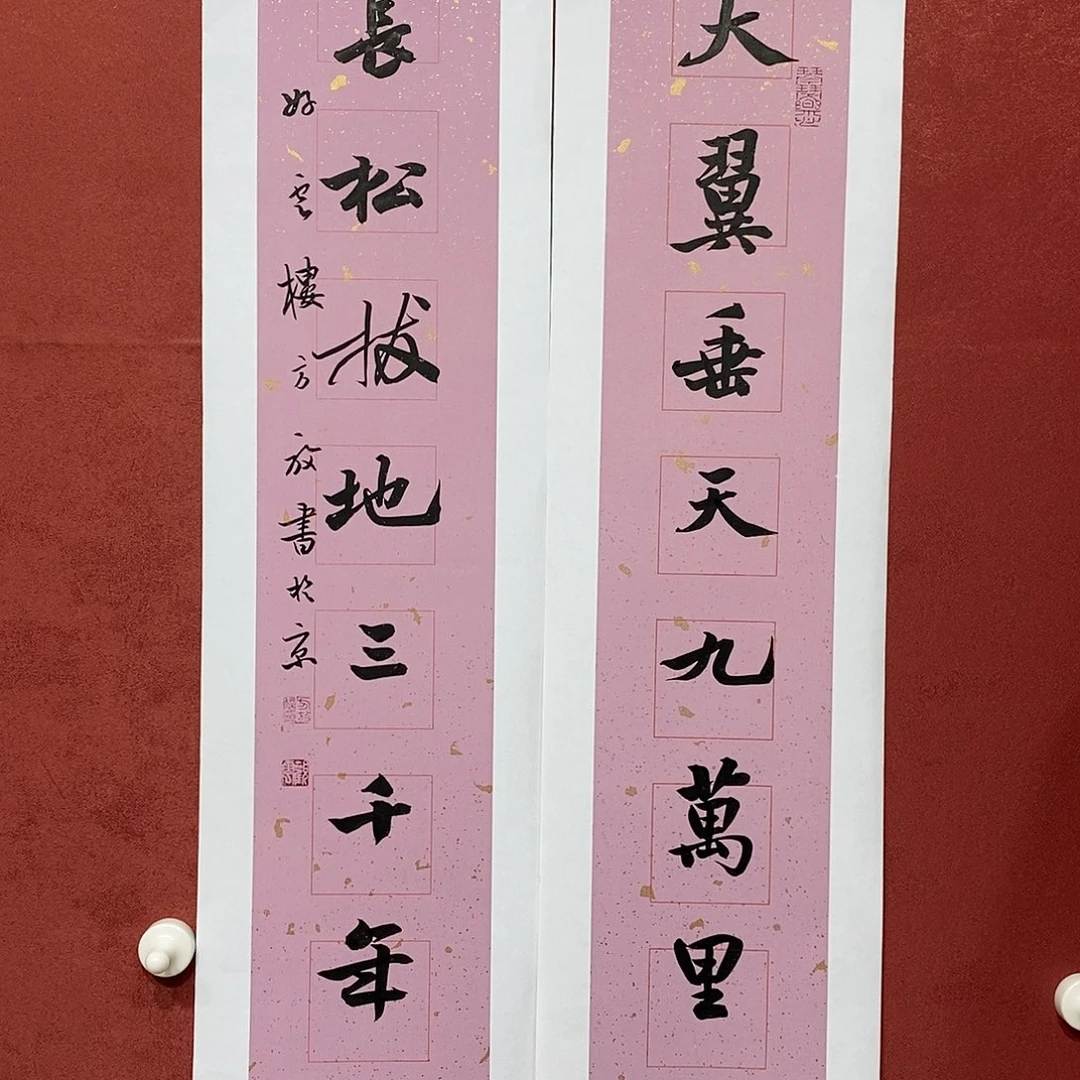 大翼垂天九萬里
長松拔地三千年
好雲樓方放書於京